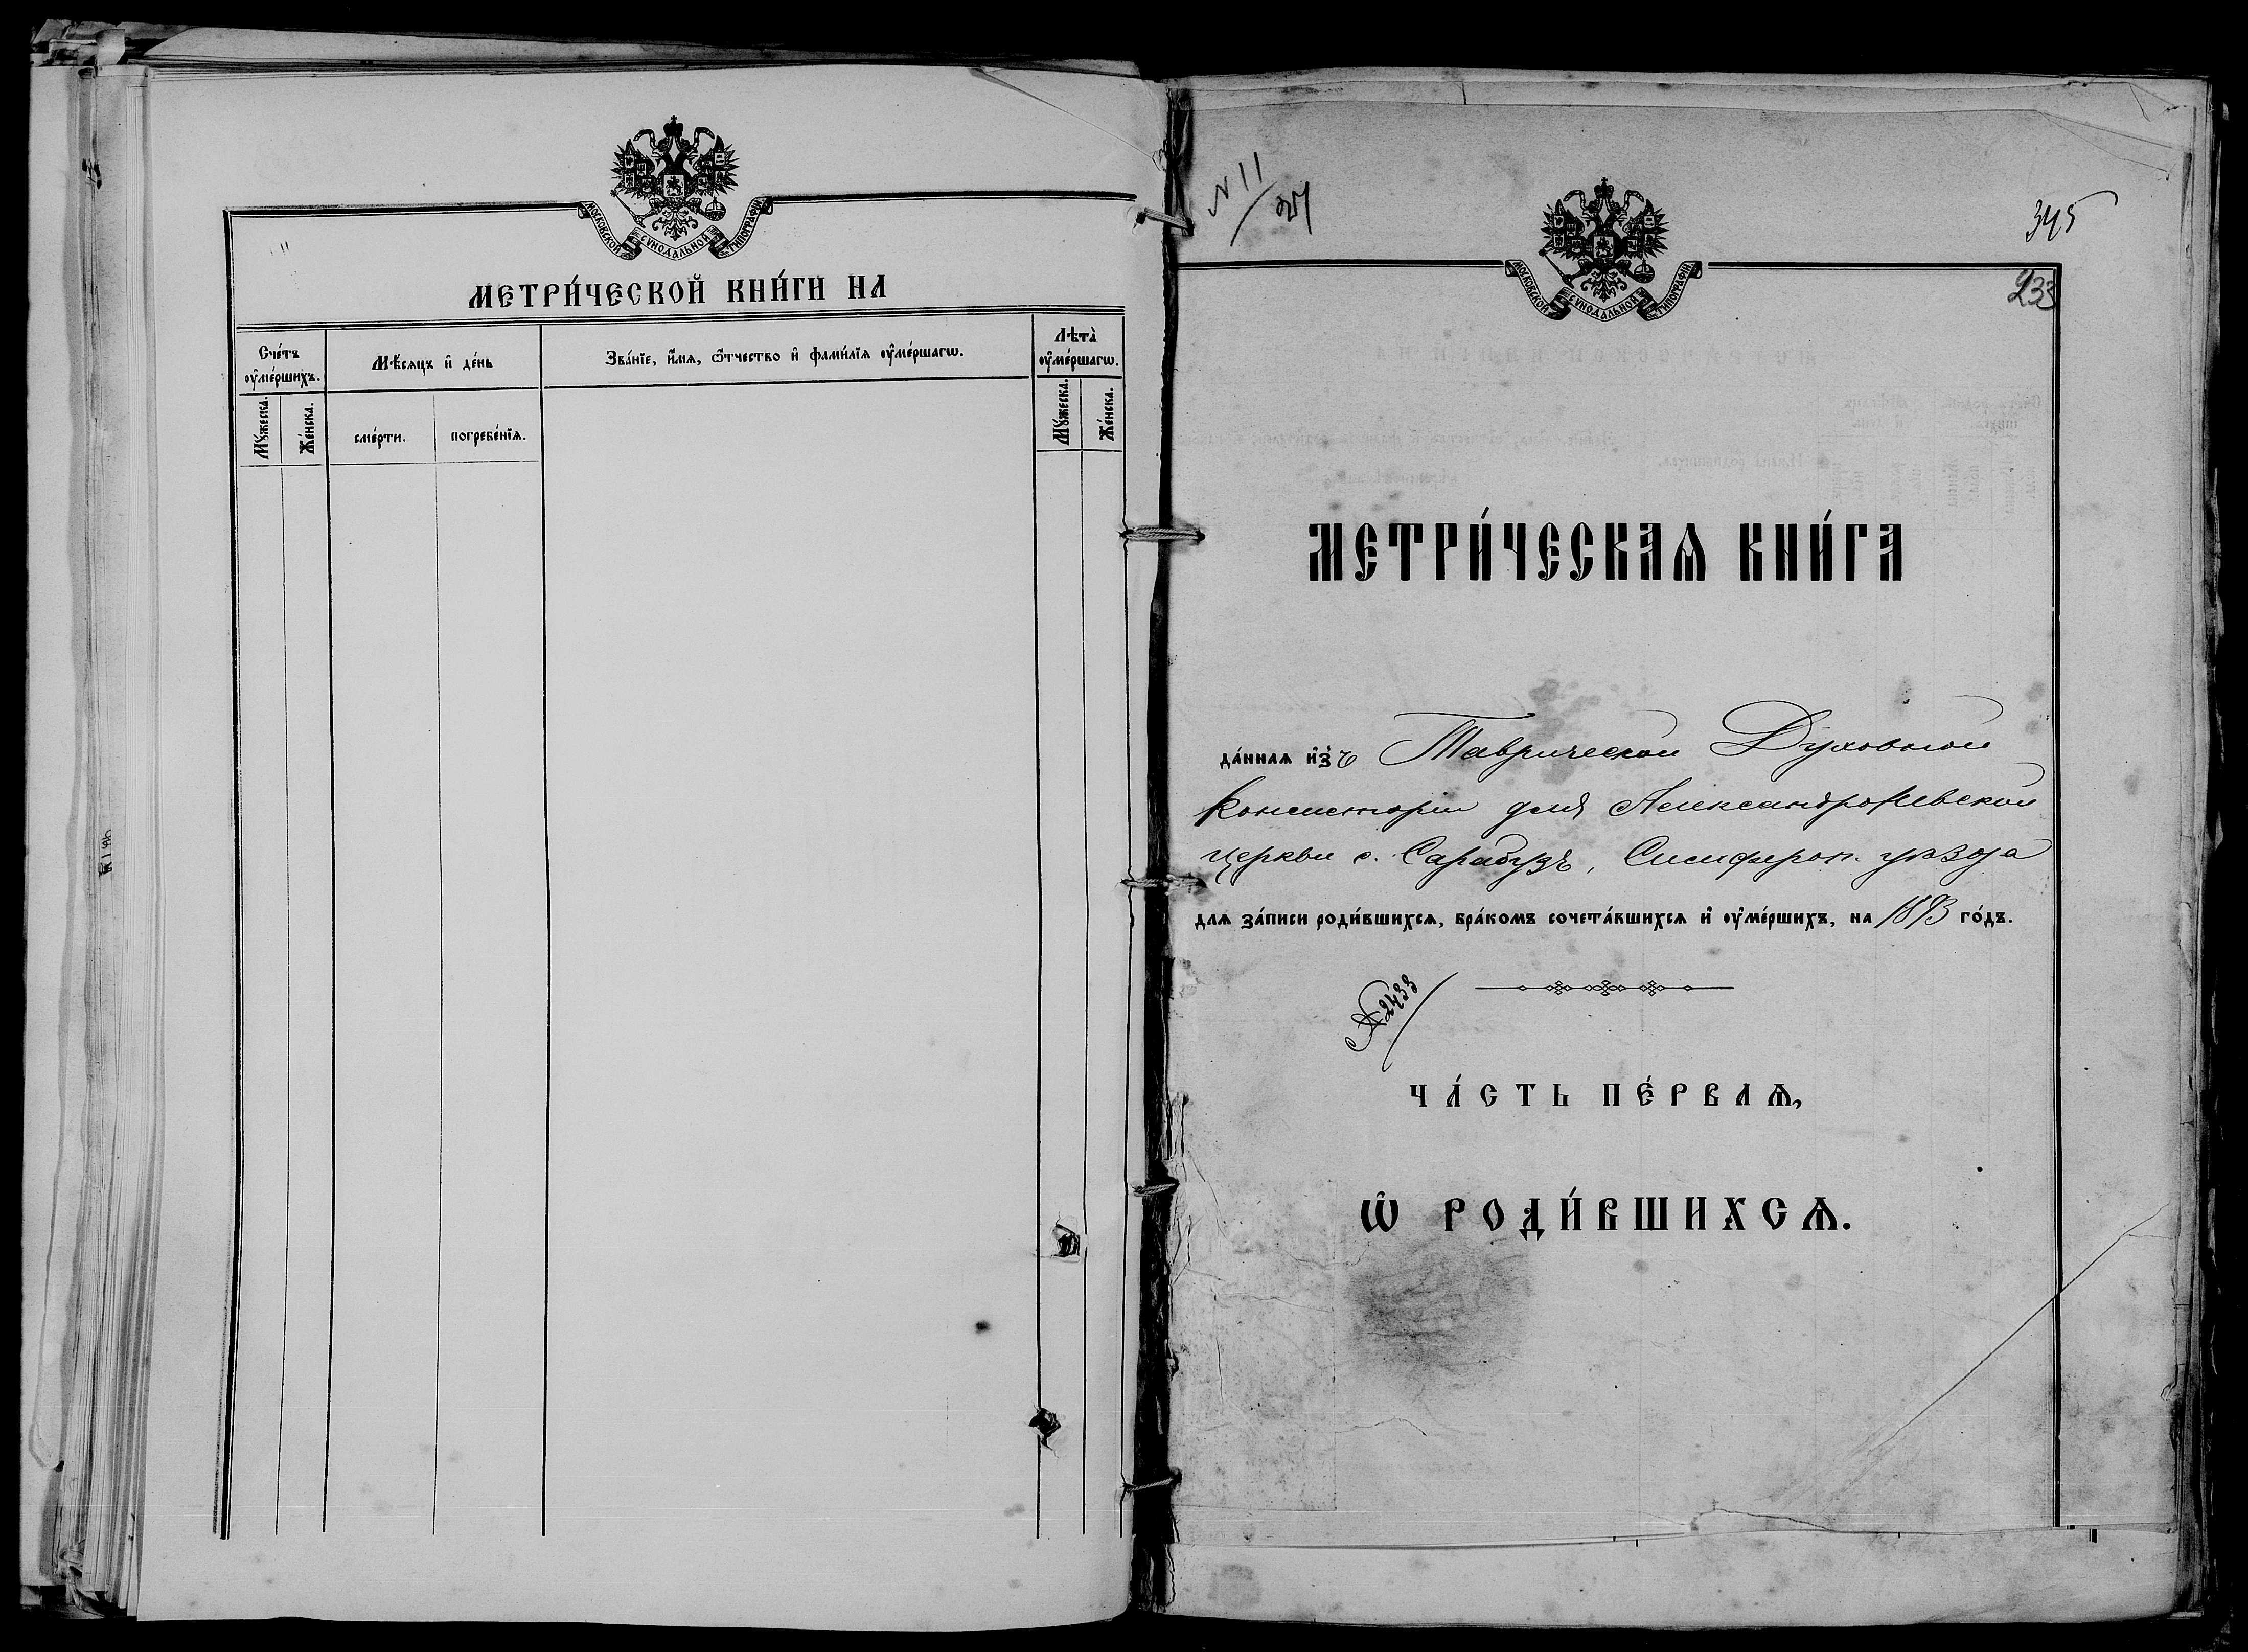 МОСКОВСКОЙ СѴНОДАЛЬНОЙ ТИПОГРАФІИ
МЕТРИ́ЧЕСКОЙ КНИ́ГИ НА
Сче́тъ ᲂу҆ме́ршихъ.
Мѣ́сяцъ и҆ де́нь
Зва́нїе, и҆́мя, ѻ҆́тчество и҆ фами́лїя ᲂу҆ме́ршагѡ.
Лѣта̀ ᲂу҆ме́ршагѡ.
Мꙋ́жеска.
Же́нска.
сме́рти.
погребе́нїя.
Мꙋ́жеска.
Же́нска.
N 11
345
МОСКОВСКОЙ СѴНОДАЛЬНОЙ ТИПОГРАФІИ
233
МЕТРИ́ЧЕСКАѦ КНИ́ГА
да́ннаѧ и҆зъ Таврической Духовной
Консисторіи для АлександроНевской
церкви с. Сарабузъ, Симфероп. уѣзда
длѧ за́писи роди́вшихсѧ, бра́комъ сочета́вшихсѧ и҆ ᲂу҆ме́ршихъ, на 1893 го́дъ.
№ 2433
ЧА́СТЬ ПЕ́РВАѦ,
Ѡ҆ РОДИ́ВШИХСѦ.